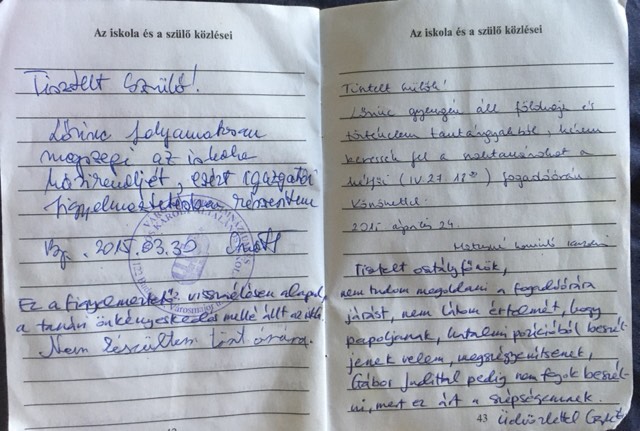 Az iskola és a szülő közlései
Tisztelt Szülő!
Lőrinc folyamatosan
megszegi az iskola
házirendjét, ezért igazgatói
figyelmeztetésben részesítem
Bp. 2015.03.30
Ez a figyelmeztető visszaélésen alapul,
a tanári önkényeskedés mellé állt az
Nem készültem tört. órára.
Az iskola és a szülő közlései
Tisztelt Szülők!
Lőrinc gyengén áll földrajz és
történelem tantárgyakból, kérem
keressék fel a szaktanárokat a
(IV. 27. 18°°) fogadóórán
Köszönettel
2015 április 24.
Tisztelt osztályfőnök,
nem tudom megoldani a fogadóórára
járást, nem látom értelmét, hogy
papoljanak, hatalmi pozícióból beszél-
jenek velem, megszégyenítsenek,
Gábor Judittal pedig nem fogok beszél-
ni, mert ez árt a szépségemnek.
43 Üdvözlettel